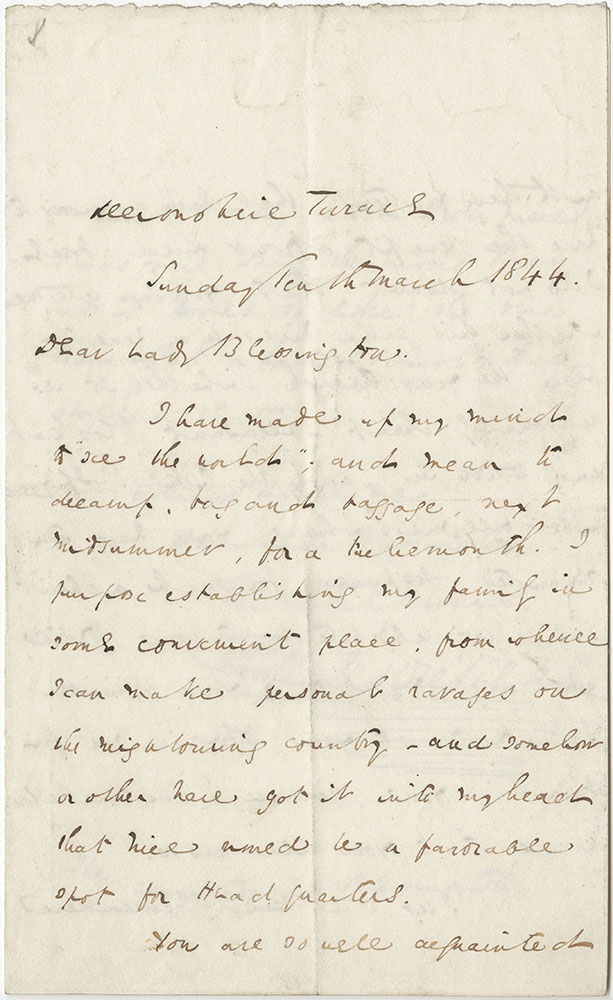 Devonshire Terrace
Sunday Tenth March 1844.
Dear Lady Blessington.
I have made up my mind
to "see the world"; and mean to
decamp, bag and baggage, next
midsummer, for a twelvemonth. I
purpose establishing my family in
some convenient place, from whence
I can make personal ravages on
the neighbouring country - and somehow
or other have got it into my head
that Nice would be a favorable
spot for Head quarters.
You are so well acquainted